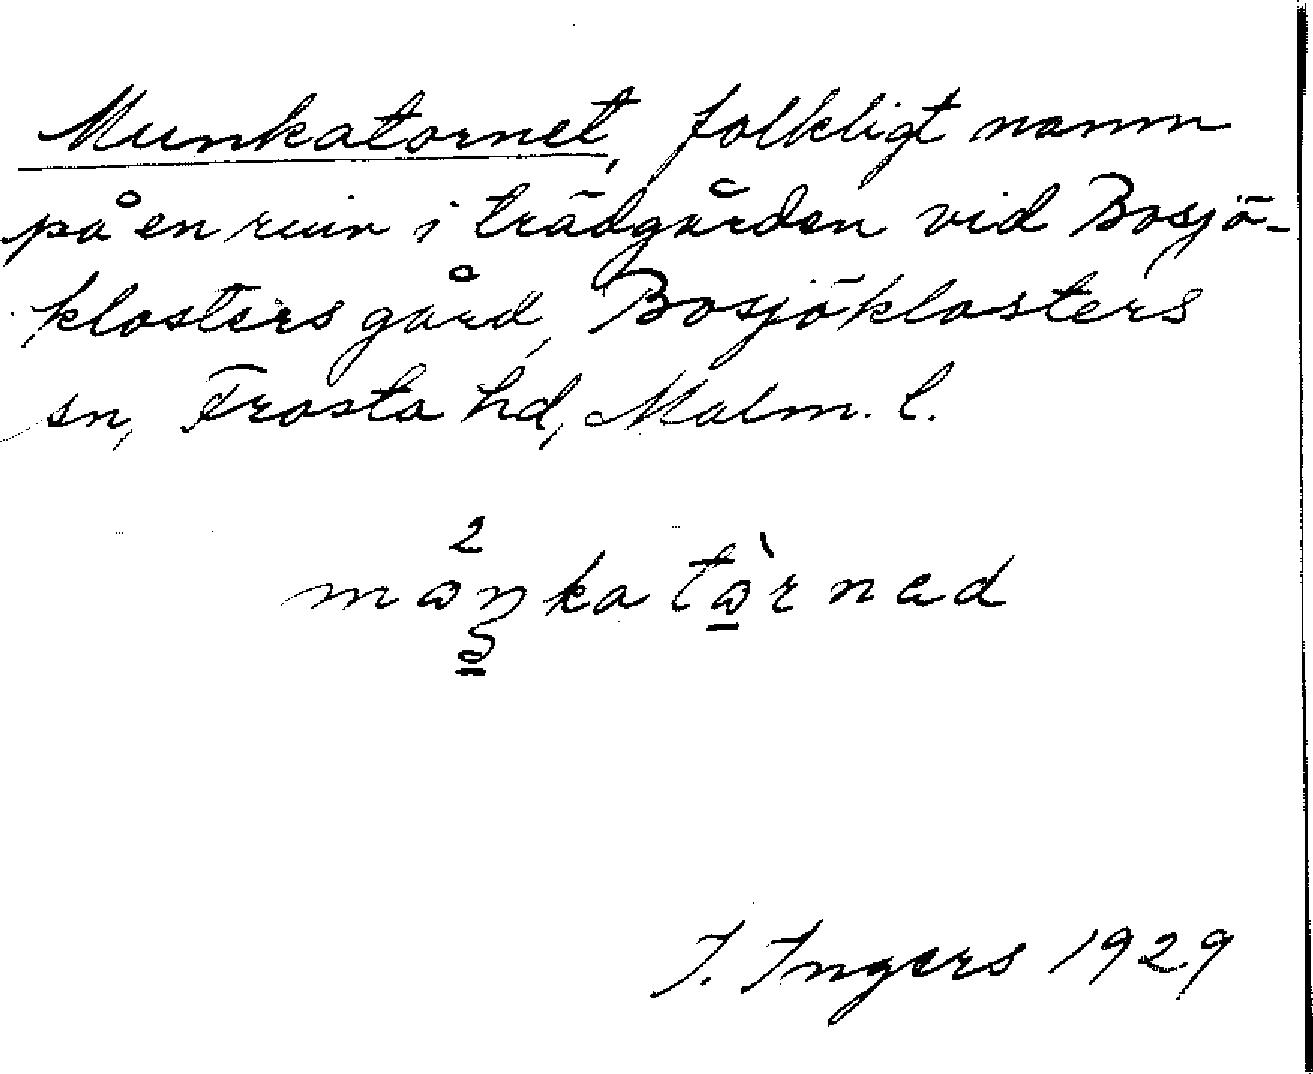 Munkatornet, folkligt namn
på en ruin i trädgården vid Bosjö-
klosters gård, Bosjöklosters
sn, Frosta hd, Malm. l.
I. Ingers 1929